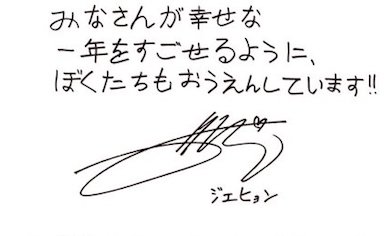 みなさんが幸せな
一年をすごせるように、
ぼくたちもおうえんしています!!
ジェヒョン